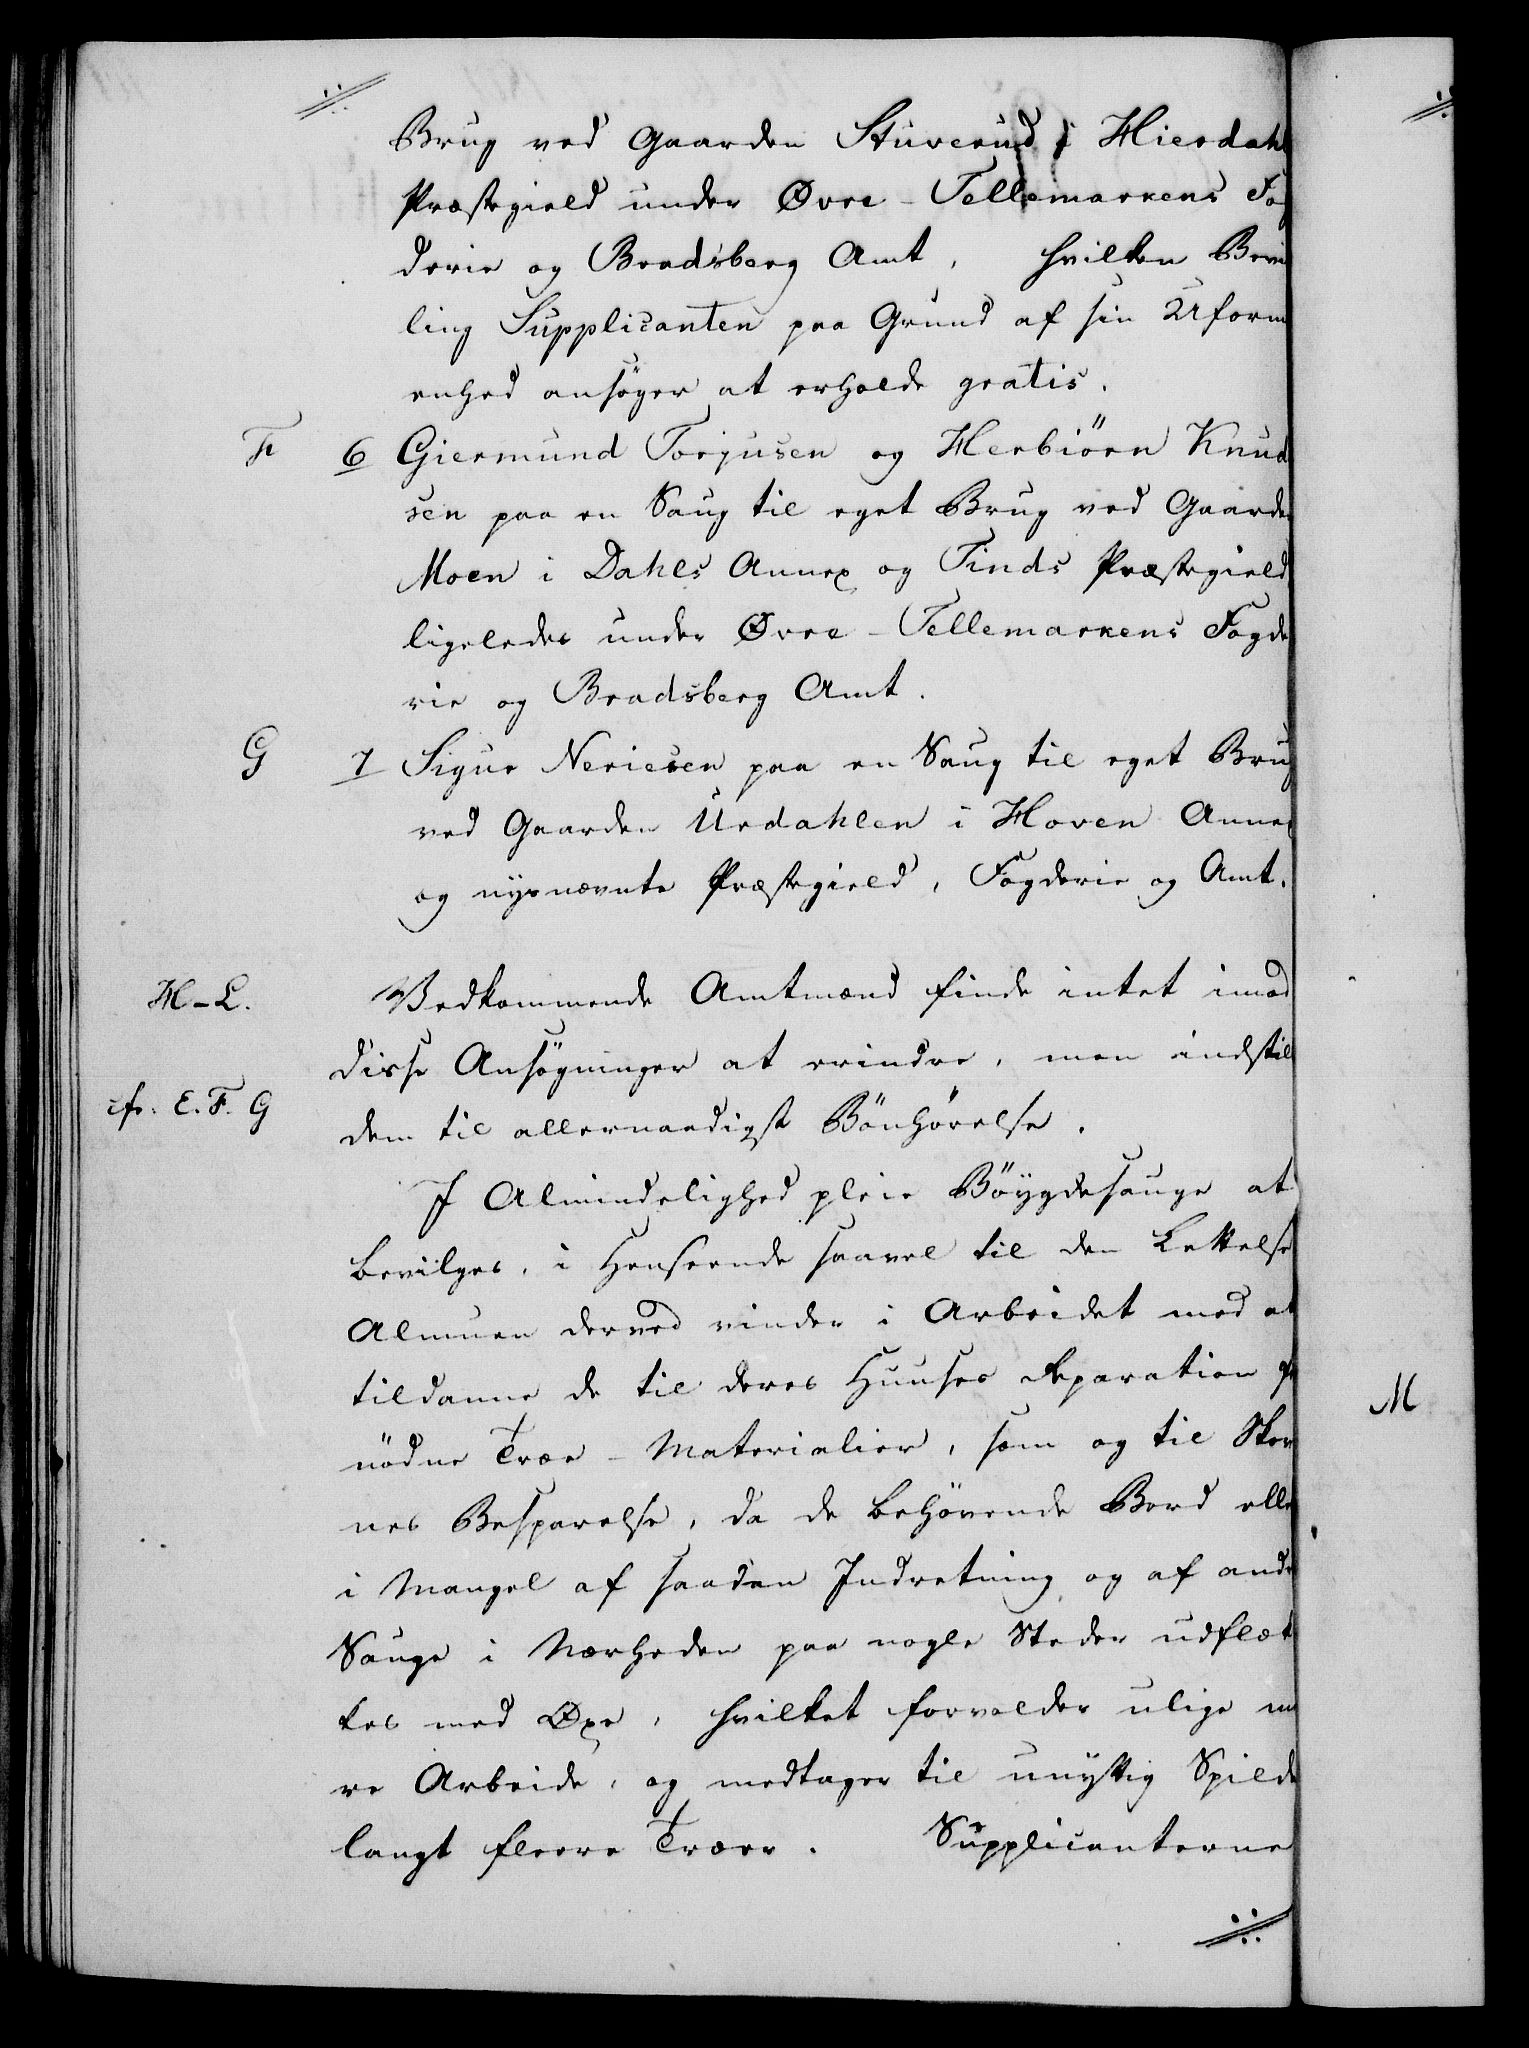 Brug ved Gaarden Stuverud i Hierdahl
Præstegield under Øvre-Tellemarkens Fog
derie og Bradsberg Amt, hvilken Bevil
ling Supplicanten paa Grund af sin Uform
enhed ansøger at erholde gratis.
F 6 Giermund Torjusen og Herbiörn Knud
sen paa en Saug til eget Brug ved Gaarden
Moen i Dahls Annex og Tinds Præstegield
ligeledes under Øvre-Tellemarkens Fogde
rie og Bradsberg Amt.
G 7 Sigur Neriesen paa en Saug til eget Brug
ved Gaarden Urdahlen i Hoven Annex
og nysnævnte Præstegield, Fogderie og Amt.
H-L. Vedkommende Amtmænd finde intet imod
disse Ansögninger at erindre, men indstill
cfr. E. F. G dem til allernaadigst Bönhörelse.
I Almindelighed pleie Böygdesauge at
bevilges, i Henseende saavel til den Lettelse
Almuen derved vinder i Arbeidet med at
tildanne de til deres Huuses Reparation for
nödne Træe-Materialier, som og til Skov
nes Besparelse, da de behövende Bord elle
i Mangel af saadan Indretning og af andre
Sauge i Nærheden paa nogle Steder udflæk
kes med Øxe, hvilket forvolder ulige me
re Arbeide, og medtager til unyttig Spilde
langt fleere Træer. Supplicanterne
M